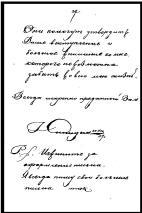 Они помогут утвердить
Ваше выступление и
больное внимание ко мне,
которое невозможно
забыть во всю мою жизнь.
Всегда искренно преданный Вам
P.S. Извините за
оформление письма.
Я всегда пишу свои большие
письма так